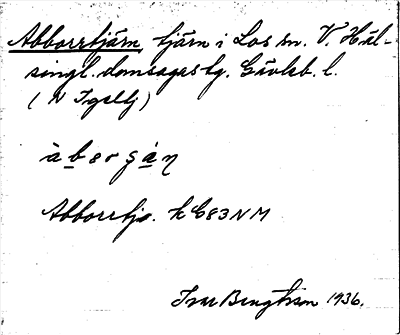 Abborrtjärn, tjärn i Los sn. V. Häl-
singl. domsagas tg. Gävleb. l.
(N Igeltj)
àbᴈrʂàn
Abborrtjä. k G83NM
Ivar Bengtsson 1936.